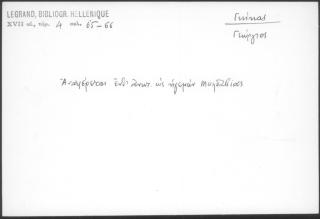 LEGRAND, BIBLIOGR. HELLENIQUE
XVII αἰ., τόμ. 4 σελ. 65-66
Γκίκας
Γεώργιος
Ἀναφέρεται ἐνθ' ἀνωτ. ὡς ἡγεμὼν Μολδαβίας